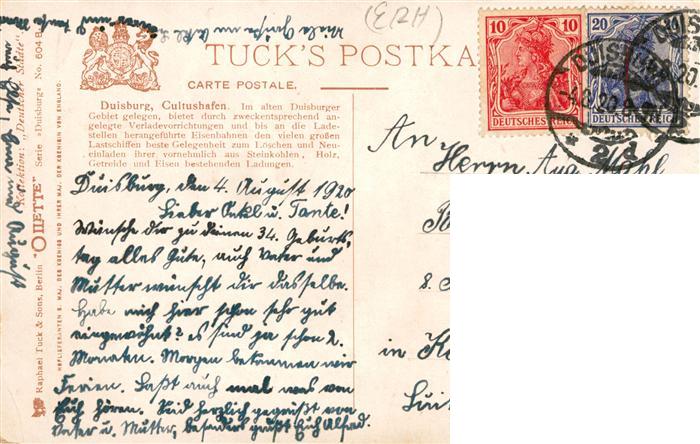 (ERH)
Viele Grüße an
TUCK'S POSTKA
CARTE POSTALE.
Duisburg, Cultushafen. Im alten Duisburger
Gebiet gelegen, bietet durch zweckentsprechend an-
gelegte Verladevorrichtungen und bis an die Lade-
stellen herangeführte Eisenbahnen den vielen großen
Lastschiffen beste Gelegenheit zum Löschen und Neu-
einladen ihrer vornehmlich aus Steinkohlen, Holz,
Getreide und Eisen bestehenden Ladungen.
Duisburg, den 4. August 1920
Lieber Onkl u. Tante!
Wünsche dir zu deinen 34. Geburts,
tag alles Gute, auch Vater und
Mutter wünscht dir dasselbe.
Habe mich hier schon sehr gut
eingewöhnt? es sind ja schon 2.
Monaten. Morgen bekommen wir
Ferien. Laßt auch mal was von
Euch hören. Seid herzlich gegrüßt von
Vater u. Mutter, besonders grüßt Euch Alfred.
10 10
DEUTSCHES REICH
20
DEUTSCHES REICH
DUISBURG
4.8.20
DUIS
An
Herrn Aug.
8.
in
Raphael Tuck & Sons, Berlin "OILETTE" Serie »Duisburg« No. 604 B
Kollektion: „Deutscher Städte"
HOFLIEFERANTEN S. MAJ. DES KOENIGS UND IHRER MAJ. DER KOENIGIN VON ENGLAND.